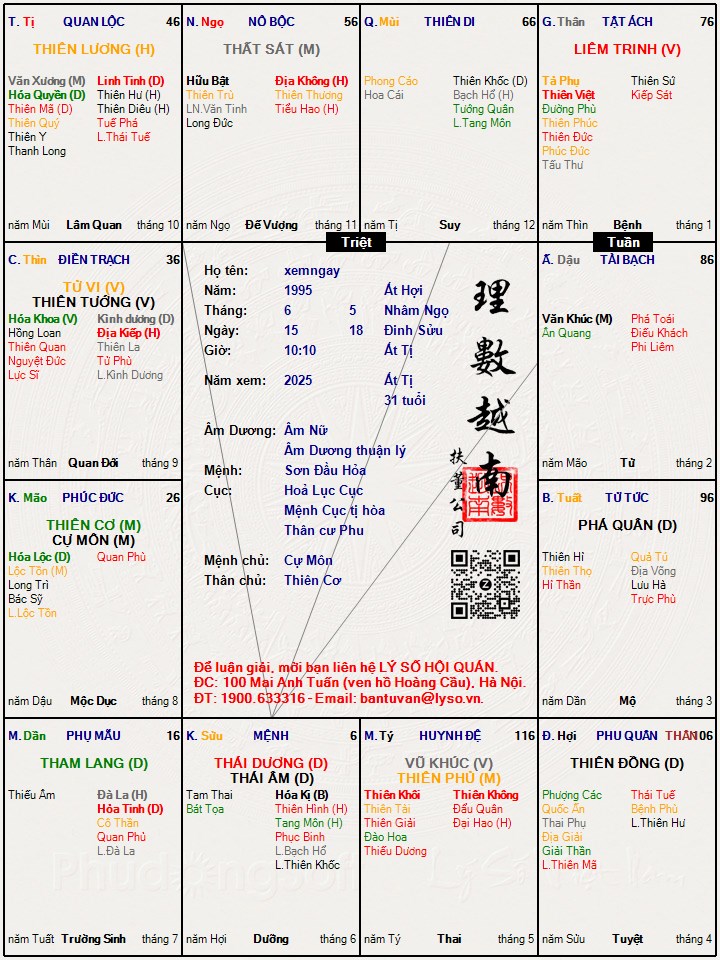 T. Tị QUAN LỘC 46
THIÊN LƯƠNG (H)
Văn Xương (M) Linh Tinh (D)
Hóa Quyền (D) Thiên Hư (H)
Thiên Mã (D) Thiên Diêu (H)
Thiên Quý Tuế Phá
Thiên Y L.Thái Tuế
Thanh Long
năm Mùi Lâm Quan tháng 10
N. Ngọ NÔ BỘC 56
THẤT SÁT (M)
Hữu Bật Địa Không (H)
Thiên Trù Thiên Thương
LN.Văn Tinh Tiểu Hao (H)
Long Đức
năm Ngọ Đế Vượng tháng 11
Q. Mùi THIÊN DI 66
Phong Cáo Thiên Khốc (D)
Hoa Cái Bạch Hổ (H)
Tướng Quân
L.Tang Môn
năm Tị Suy tháng 12
G. Thân TẬT ÁCH 76
LIÊM TRINH (V)
Tả Phụ Thiên Sứ
Thiên Việt Kiếp Sát
Đường Phù
Thiên Phúc
Thiên Đức
Phúc Đức
Tấu Thư
năm Thìn Bệnh tháng 1
Triệt
Tuần
C. Thìn ĐIỀN TRẠCH 36
TỬ VI (V)
THIÊN TƯỚNG (V)
Hóa Khoa (V) Kình dương (D)
Hồng Loan Địa Kiếp (H)
Thiên Quan Thiên La
Nguyệt Đức Tử Phù
Lực Sĩ L.Kình Dương
năm Thân Quan Đới tháng 9
Họ tên: xemngay
Năm: 1995 Ất Hợi
Tháng: 6 5 Nhâm Ngọ
Ngày: 15 18 Đinh Sửu
Giờ: 10:10 Ất Tị
Năm xem: 2025 Ất Tị
31 tuổi
Âm Dương: Âm Nữ
Âm Dương thuận lý
Mệnh: Sơn Đầu Hỏa
Cục: Hoả Lục Cục
Mệnh Cục tị hòa
Thân cư Phu
Mệnh chủ: Cự Môn
Thân chủ: Thiên Cơ
理數越南
扶董公司
Để luận giải, mời bạn liên hệ LÝ SỐ HỘI QUÁN.
ĐC: 100 Mai Anh Tuấn (ven hồ Hoàng Cầu), Hà Nội.
ĐT: 1900.633316 - Email: bantuvan@lyso.vn.
Ấ. Dậu TÀI BẠCH 86
Văn Khúc (M) Phá Toái
Ân Quang Điếu Khách
Phi Liêm
năm Mão Tử tháng 2
K. Mão PHÚC ĐỨC 26
THIÊN CƠ (M)
CỰ MÔN (M)
Hóa Lộc (D) Quan Phù
Lộc Tồn (M)
Long Trì
Bác Sỹ
L.Lộc Tồn
năm Dậu Mộc Dục tháng 8
B. Tuất TỬ TỨC 96
PHÁ QUÂN (D)
Thiên Hỉ Quả Tú
Thiên Thọ Địa Võng
Hỉ Thần Lưu Hà
Trực Phù
năm Dần Mộ tháng 3
M. Dần PHỤ MẪU 16
THAM LANG (D)
Thiếu Âm Đà La (H)
Hỏa Tinh (D)
Cô Thần
Quan Phủ
L.Đà La
năm Tuất Trường Sinh tháng 7
K. Sửu MỆNH 6
THÁI DƯƠNG (D)
THÁI ÂM (D)
Tam Thai Hóa Kị (B)
Bát Tọa Thiên Hình (H)
Tang Môn (H)
Phục Binh
L.Bạch Hổ
L.Thiên Khốc
năm Hợi Dưỡng tháng 6
M. Tý HUYNH ĐỆ 116
VŨ KHÚC (V)
THIÊN PHỦ (M)
Thiên Khôi Thiên Không
Thiên Tài Đẩu Quân
Thiên Giải Đại Hao (H)
Đào Hoa
Thiếu Dương
năm Tý Thai tháng 5
Đ. Hợi PHU QUÂN THÂN 106
THIÊN ĐỒNG (D)
Phượng Các Thái Tuế
Quốc Ấn Bệnh Phù
Thai Phụ L.Thiên Hư
Địa Giải
Giải Thần
L.Thiên Mã
năm Sửu Tuyệt tháng 4